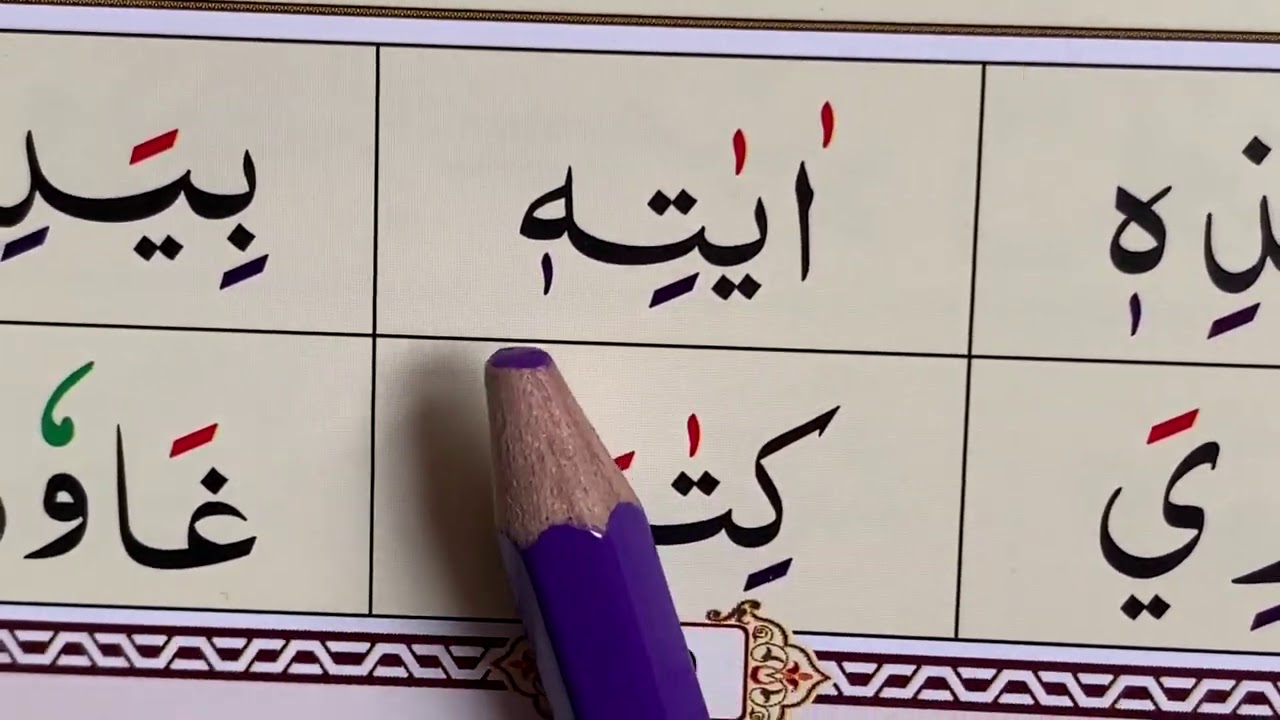 ذِهٖ اٰيٰتِهٖ بِيَدِ
يَ كِتٰ غَاوٗ